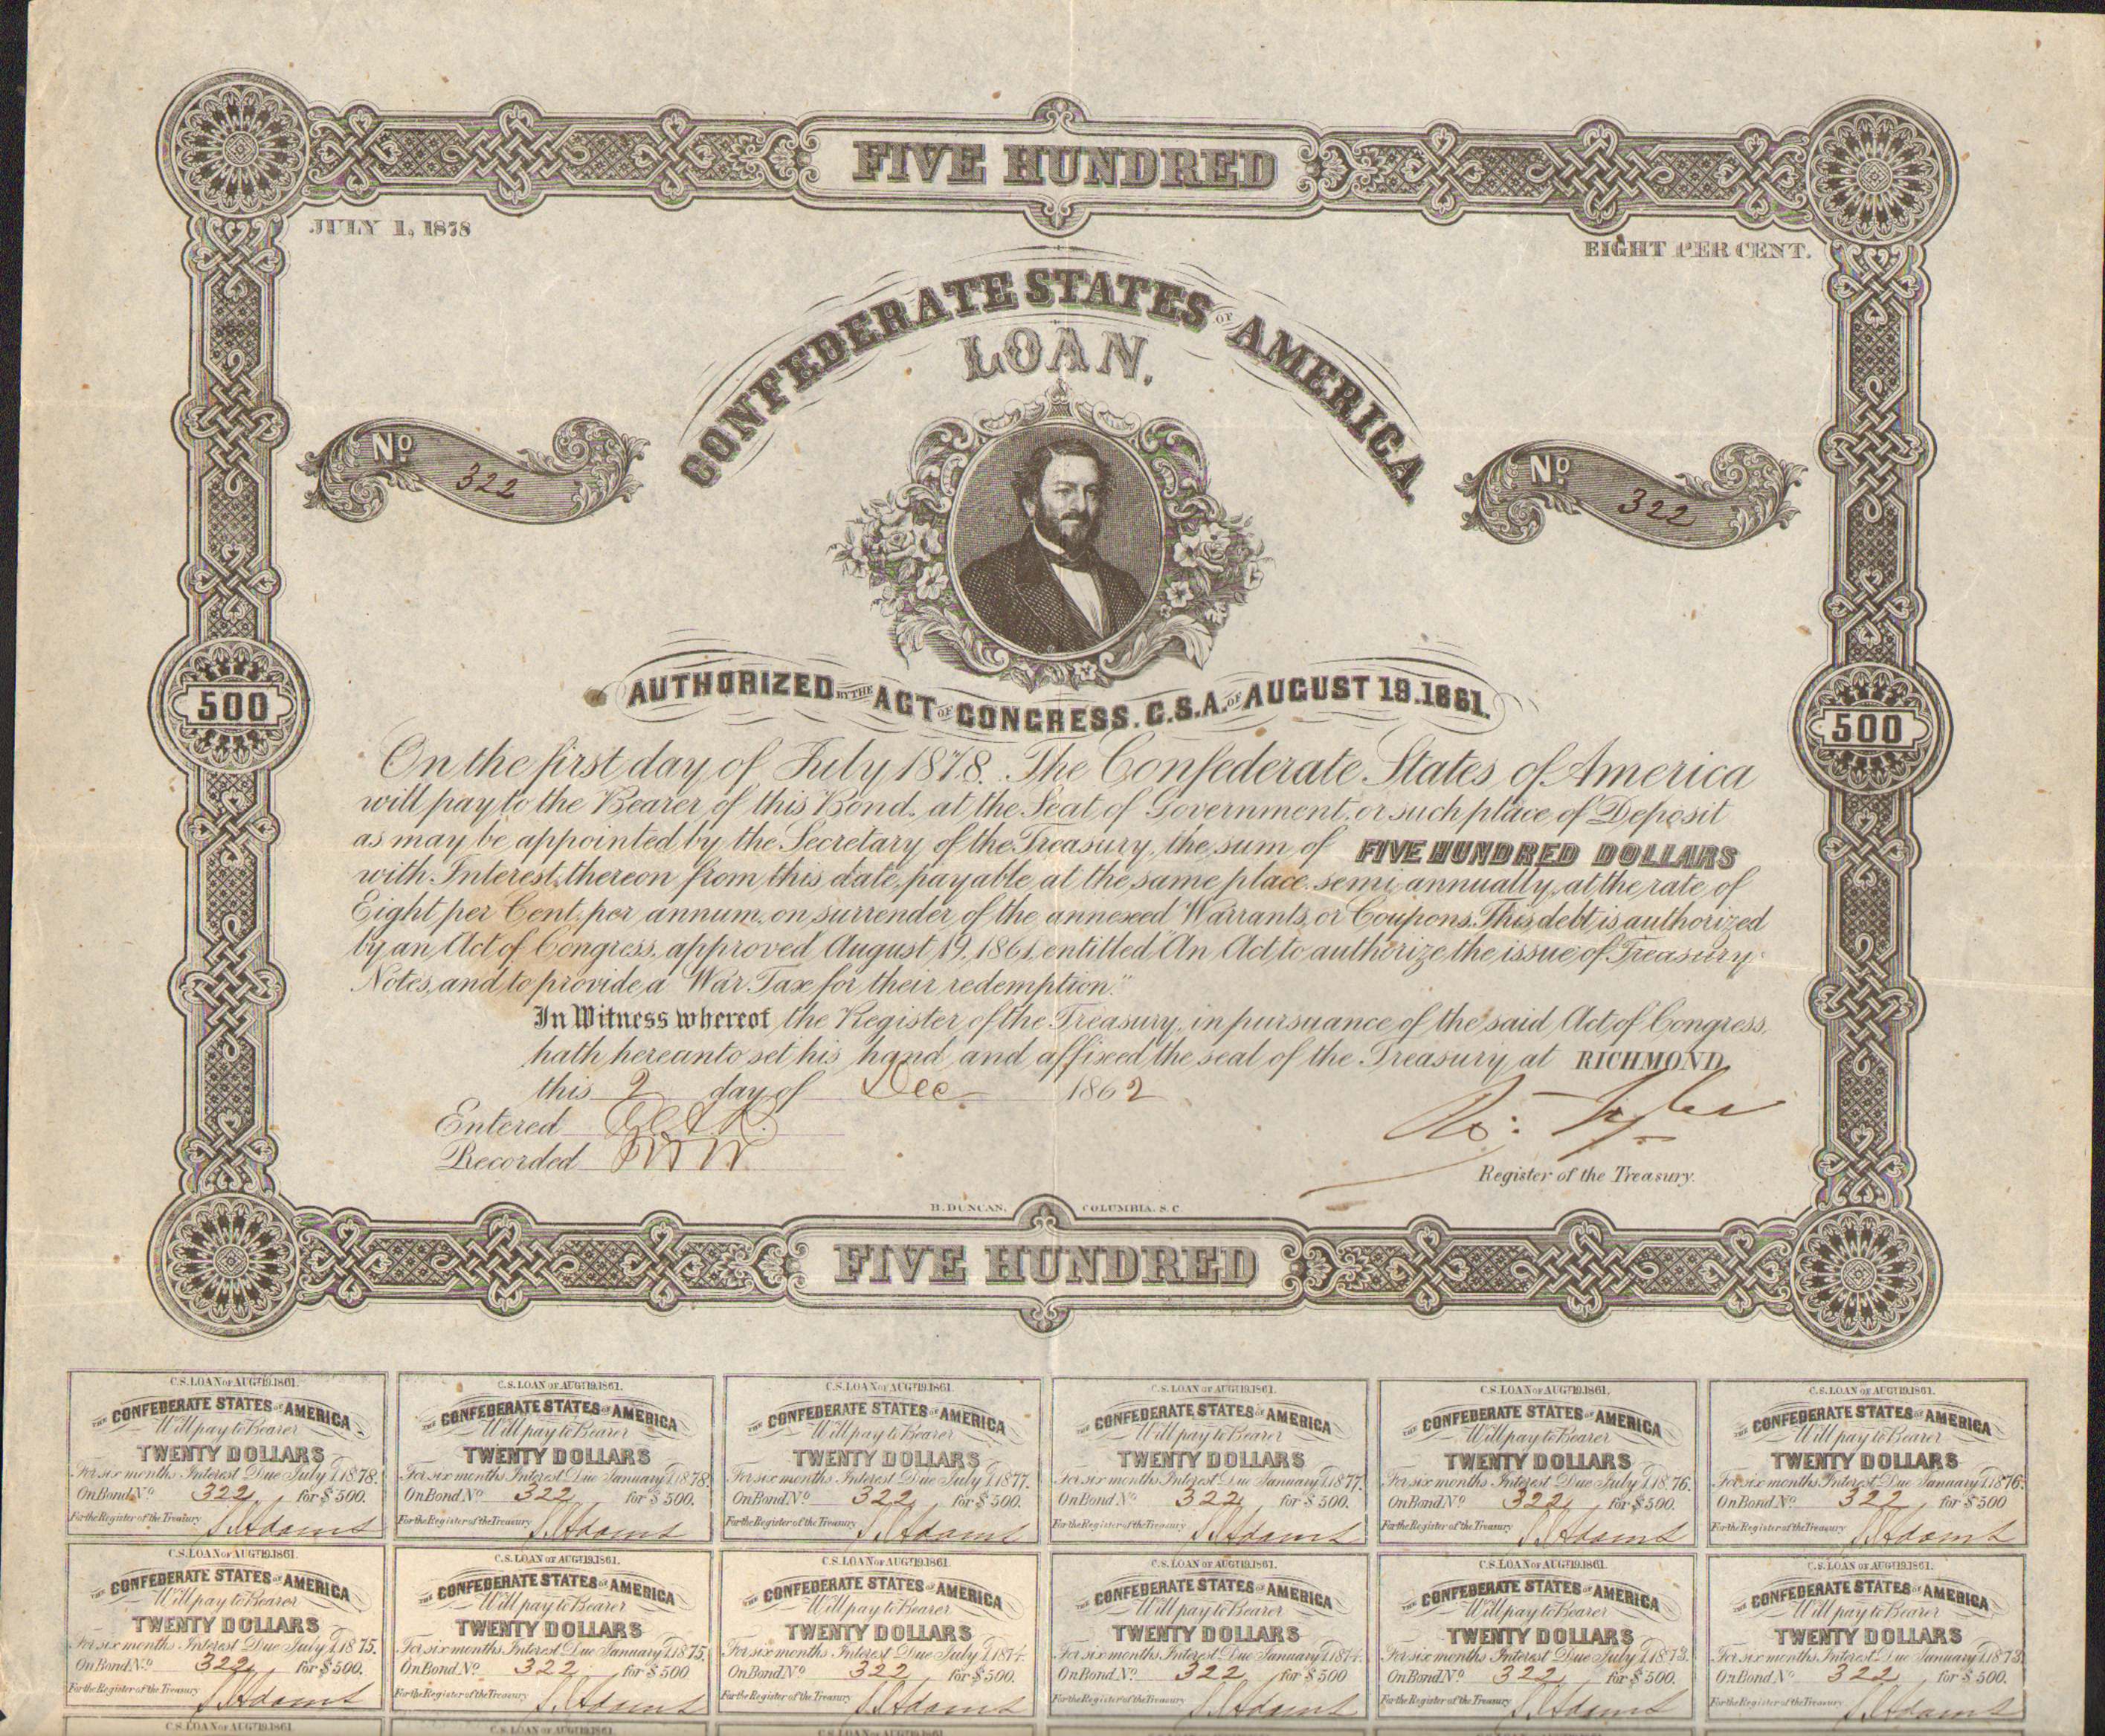 FIVE HUNDRED
JULY 1, 1878
EIGHT PER CENT.
CONFEDERATE STATES OF AMERICA.
LOAN,
No 322
No 322
AUTHORIZED BY THE ACT OF CONGRESS. C.S.A. OF AUGUST 19.1861.
500
500
On the first day of July 1878. The Confederate States of America
will pay to the Bearer of this Bond, at the Seat of Government, or such place of Deposit
as may be appointed by the Secretary of the Treasury, the sum of FIVE HUNDRED DOLLARS
with Interest thereon from this date, payable at the same place semi annually, at the rate of
Eight per Cent. per annum, on surrender of the annexed Warrants, or Coupons. This debt is authorized
by an Act of Congress, approved August 19, 1861, entitled "An Act to authorize the issue of Treasury
Notes, and to provide a War Tax for their redemption."
In Witness whereof the Register of the Treasury, in pursuance of the said Act of Congress,
hath hereunto set his hand and affixed the seal of the Treasury at RICHMOND,
this 2 day of Dec 1862
Entered
Recorded
Ro: Tyler
Register of the Treasury.
B. DUNCAN, COLUMBIA. S.C.
FIVE HUNDRED
C.S. LOAN OF AUGT 19.1861.
THE CONFEDERATE STATES OF AMERICA
Will pay to Bearer
TWENTY DOLLARS
For six months Interest Due July 1, 1878.
On Bond No 322 for $ 500.
For the Register of the Treasury
C.S. LOAN OF AUGT 19.1861.
THE CONFEDERATE STATES OF AMERICA
Will pay to Bearer
TWENTY DOLLARS
For six months Interest Due January 1, 1878.
On Bond No 322 for $ 500.
For the Register of the Treasury
C.S. LOAN OF AUGT 19.1861
THE CONFEDERATE STATES OF AMERICA
Will pay to Bearer
TWENTY DOLLARS
For six months Interest Due July 1, 1877.
On Bond No 322 for $ 500.
For the Register of the Treasury
C.S. LOAN OF AUGT 19.1861.
THE CONFEDERATE STATES OF AMERICA
Will pay to Bearer
TWENTY DOLLARS
For six months Interest Due January 1, 1877.
On Bond No 322 for $ 500.
For the Register of the Treasury
C.S. LOAN OF AUGT 19.1861.
THE CONFEDERATE STATES OF AMERICA
Will pay to Bearer
TWENTY DOLLARS
For six months Interest Due July 1, 1876.
On Bond No 322 for $ 500.
For the Register of the Treasury
C.S. LOAN OF AUGT 19.1861.
THE CONFEDERATE STATES OF AMERICA
Will pay to Bearer
TWENTY DOLLARS
For six months Interest Due January 1, 1876.
On Bond No 322 for $ 500
For the Register of the Treasury
C.S. LOAN OF AUGT 19.1861.
THE CONFEDERATE STATES OF AMERICA
Will pay to Bearer
TWENTY DOLLARS
For six months Interest Due July 1, 1875.
On Bond No 322 for $ 500.
For the Register of the Treasury
C.S. LOAN OF AUGT 19.1861.
THE CONFEDERATE STATES OF AMERICA
Will pay to Bearer
TWENTY DOLLARS
For six months Interest Due January 1, 1875.
On Bond No 322 for $ 500
For the Register of the Treasury
C.S. LOAN OF AUGT 19.1861.
THE CONFEDERATE STATES OF AMERICA
Will pay to Bearer
TWENTY DOLLARS
For six months Interest Due July 1, 1874.
On Bond No 322 for $ 500.
For the Register of the Treasury
C.S. LOAN OF AUGT 19.1861.
THE CONFEDERATE STATES OF AMERICA
Will pay to Bearer
TWENTY DOLLARS
For six months Interest Due January 1, 1874.
On Bond No 322 for $ 500
For the Register of the Treasury
C.S. LOAN OF AUGT 19.1861.
THE CONFEDERATE STATES OF AMERICA
Will pay to Bearer
TWENTY DOLLARS
For six months Interest Due July 1, 1873.
On Bond No 322 for $ 500.
For the Register of the Treasury
C.S. LOAN OF AUGT 19.1861.
THE CONFEDERATE STATES OF AMERICA
Will pay to Bearer
TWENTY DOLLARS
For six months Interest Due January 1, 1873.
On Bond No 322 for $ 500.
For the Register of the Treasury
C.S. LOAN OF AUGT 19.1861
C.S. LOAN OF AUGT 19.1861
C.S. LOAN OF AUGT 19.1861